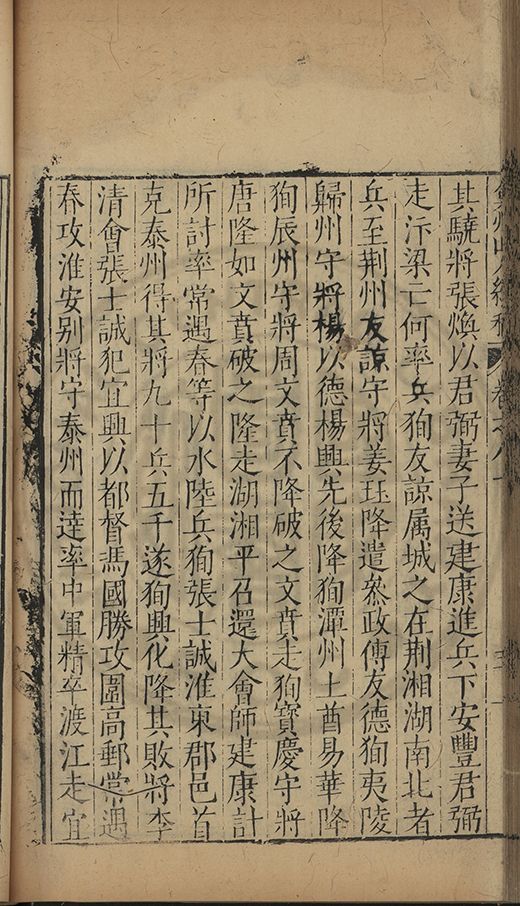 弇州山人續稿 卷之八十
其驍將張煥以君弼妻子送建康進兵下安豐君弼
走汴梁亡何率兵狥友諒属城之在荆湘湖南北者
兵至荆州友諒守將姜珏降遣叅政傅友德狥夷陵
歸州守將楊以德楊興先後降狥潭州土酋易華降
狥辰州守將周文賁不降破之文賁走狥寳慶守將
唐隆如文賁破之隆走湖湘平召還大會師建康計
所討率常遇春等以水陸兵狥張士誠淮東郡邑首
克泰州得其將九十兵五千遂狥興化降其敗將李
清會張士誠犯宜興以都督馮國勝攻圍高郵常遇
春攻淮安别將守泰州而達率中軍精卒渡江走宜